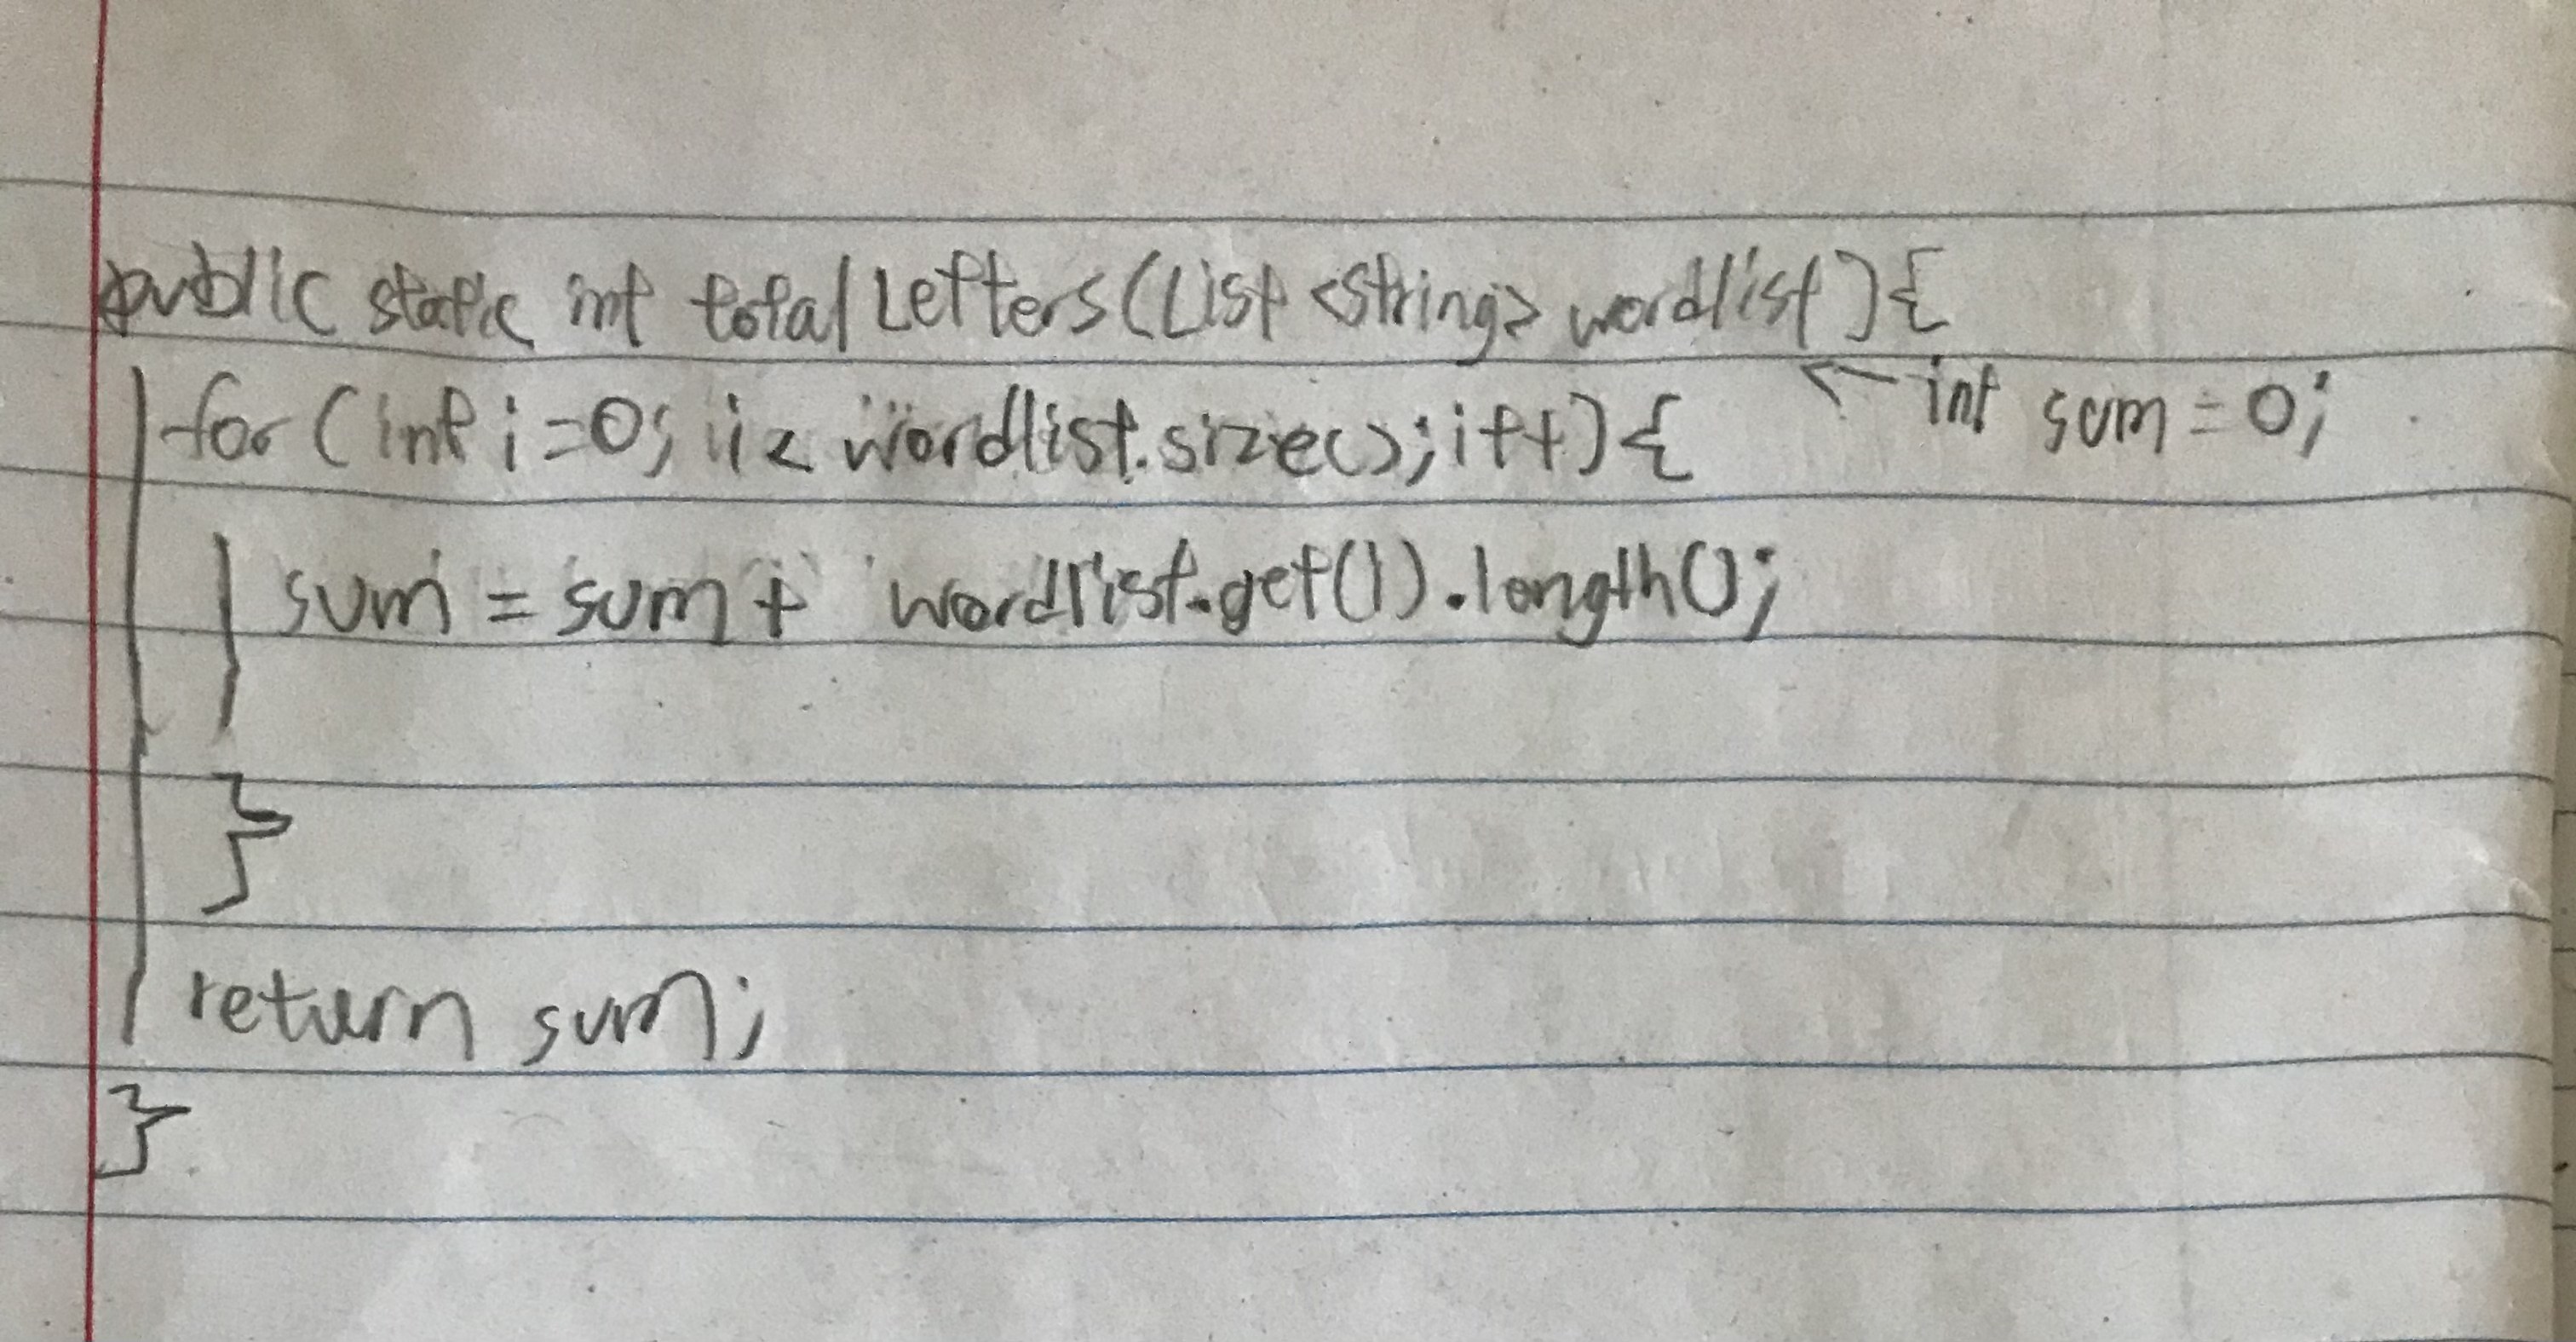 public static int totalLetters(List<String> wordlist){
int sum = 0;
for (int i=0; i< wordlist.size(); i++){
sum = sum + wordlist.get(1).length();
}
return sum;
}